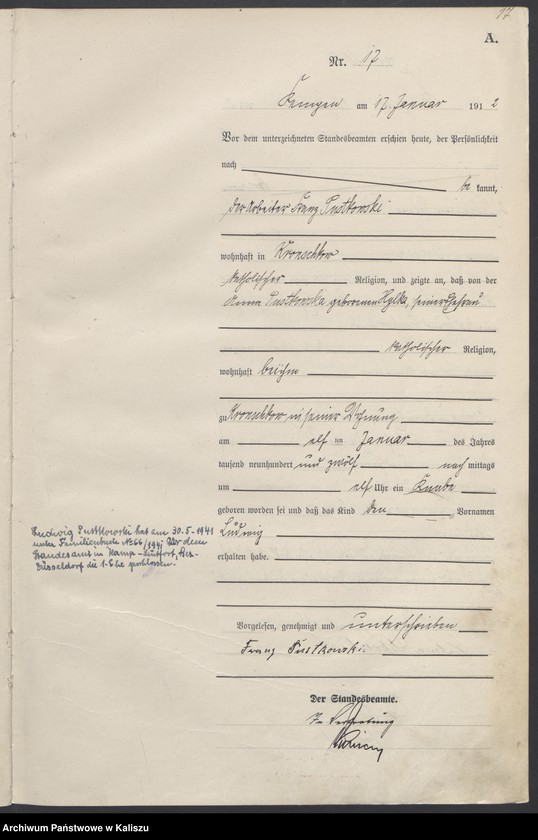 17
A.
Nr. 17
Kempen am 17. Januar 1912
Vor dem unterzeichneten Standesbeamten erschien heute, der Persönlichkeit
nach
be kannt,
der Arbeiter Franz Pustkowski
wohnhaft in Kronschkow
katholischer Religion, und zeigte an, daß von der
Anna Pustkowska geborenen Hylka, seiner Ehefrau
katholischer Religion,
wohnhaft bei ihm
zu Kronschkow in seiner Wohnung
am elf ten Januar des Jahres
tausend neunhundert und zwölf nach mittags
um elf Uhr ein Knabe
geboren worden sei und daß das Kind den Vornamen
Ludwig
erhalten habe.
Ludwig Pustkowski hat am 30.5.1941
unter Familienbuch No 66/1941 vor dem
Standesamt in Kamp-Lintfort, Bez.
Düsseldorf die 1. Ehe geschlossen.
Vorgelesen, genehmigt und unterschrieben
Franz Pustkowski.
Der Standesbeamte.
In Vertretung
Archiwum Państwowe w Kaliszu